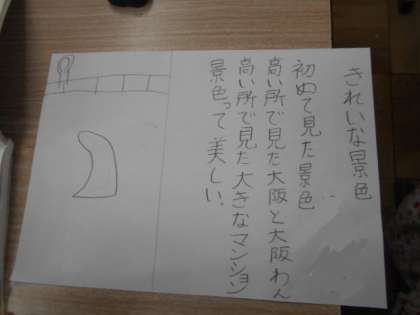 きれいな景色
初めて見た景色
高い所で見た大阪と大阪わん
高い所で見た大きなマンション
景色って美しい。